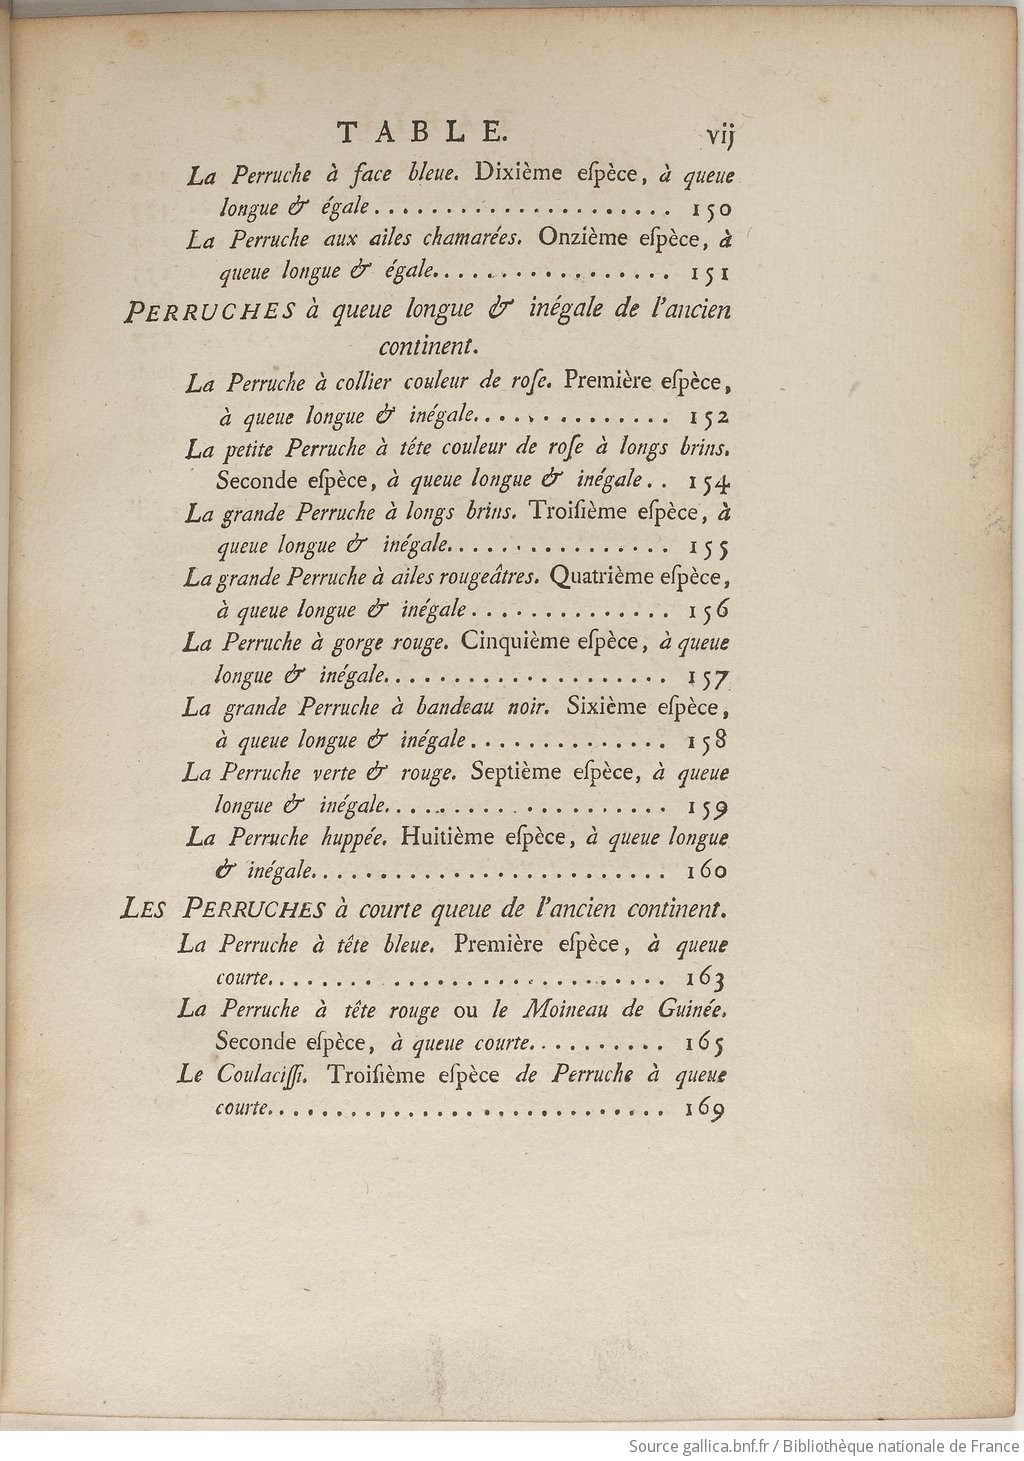 TABLE. vij
La Perruche à face bleue. Dixième eſpèce, à queue
longue & égale..................... 150
La Perruche aux ailes chamarées. Onzième eſpèce, à
queue longue & égale................. 151
PERRUCHES à queue longue & inégale de l'ancien
continent.
La Perruche à collier couleur de roſe. Première eſpèce,
à queue longue & inégale.............. 152
La petite Perruche à tête couleur de roſe à longs brins.
Seconde eſpèce, à queue longue & inégale.. 154
La grande Perruche à longs brins. Troiſième eſpèce, à
queue longue & inégale................ 155
La grande Perruche à ailes rougeâtres. Quatrième eſpèce,
à queue longue & inégale.............. 156
La Perruche à gorge rouge. Cinquième eſpèce, à queue
longue & inégale.................... 157
La grande Perruche à bandeau noir. Sixième eſpèce,
à queue longue & inégale.............. 158
La Perruche verte & rouge. Septième eſpèce, à queue
longue & inégale.................... 159
La Perruche huppée. Huitième eſpèce, à queue longue
& inégale.......................... 160
LES PERRUCHES à courte queue de l'ancien continent.
La Perruche à tête bleue. Première eſpèce, à queue
courte............................ 163
La Perruche à tête rouge ou le Moineau de Guinée.
Seconde eſpèce, à queue courte.......... 165
Le Coulaciſſi. Troiſième eſpèce de Perruche à queue
courte............................. 169
Source gallica.bnf.fr / Bibliothèque nationale de France